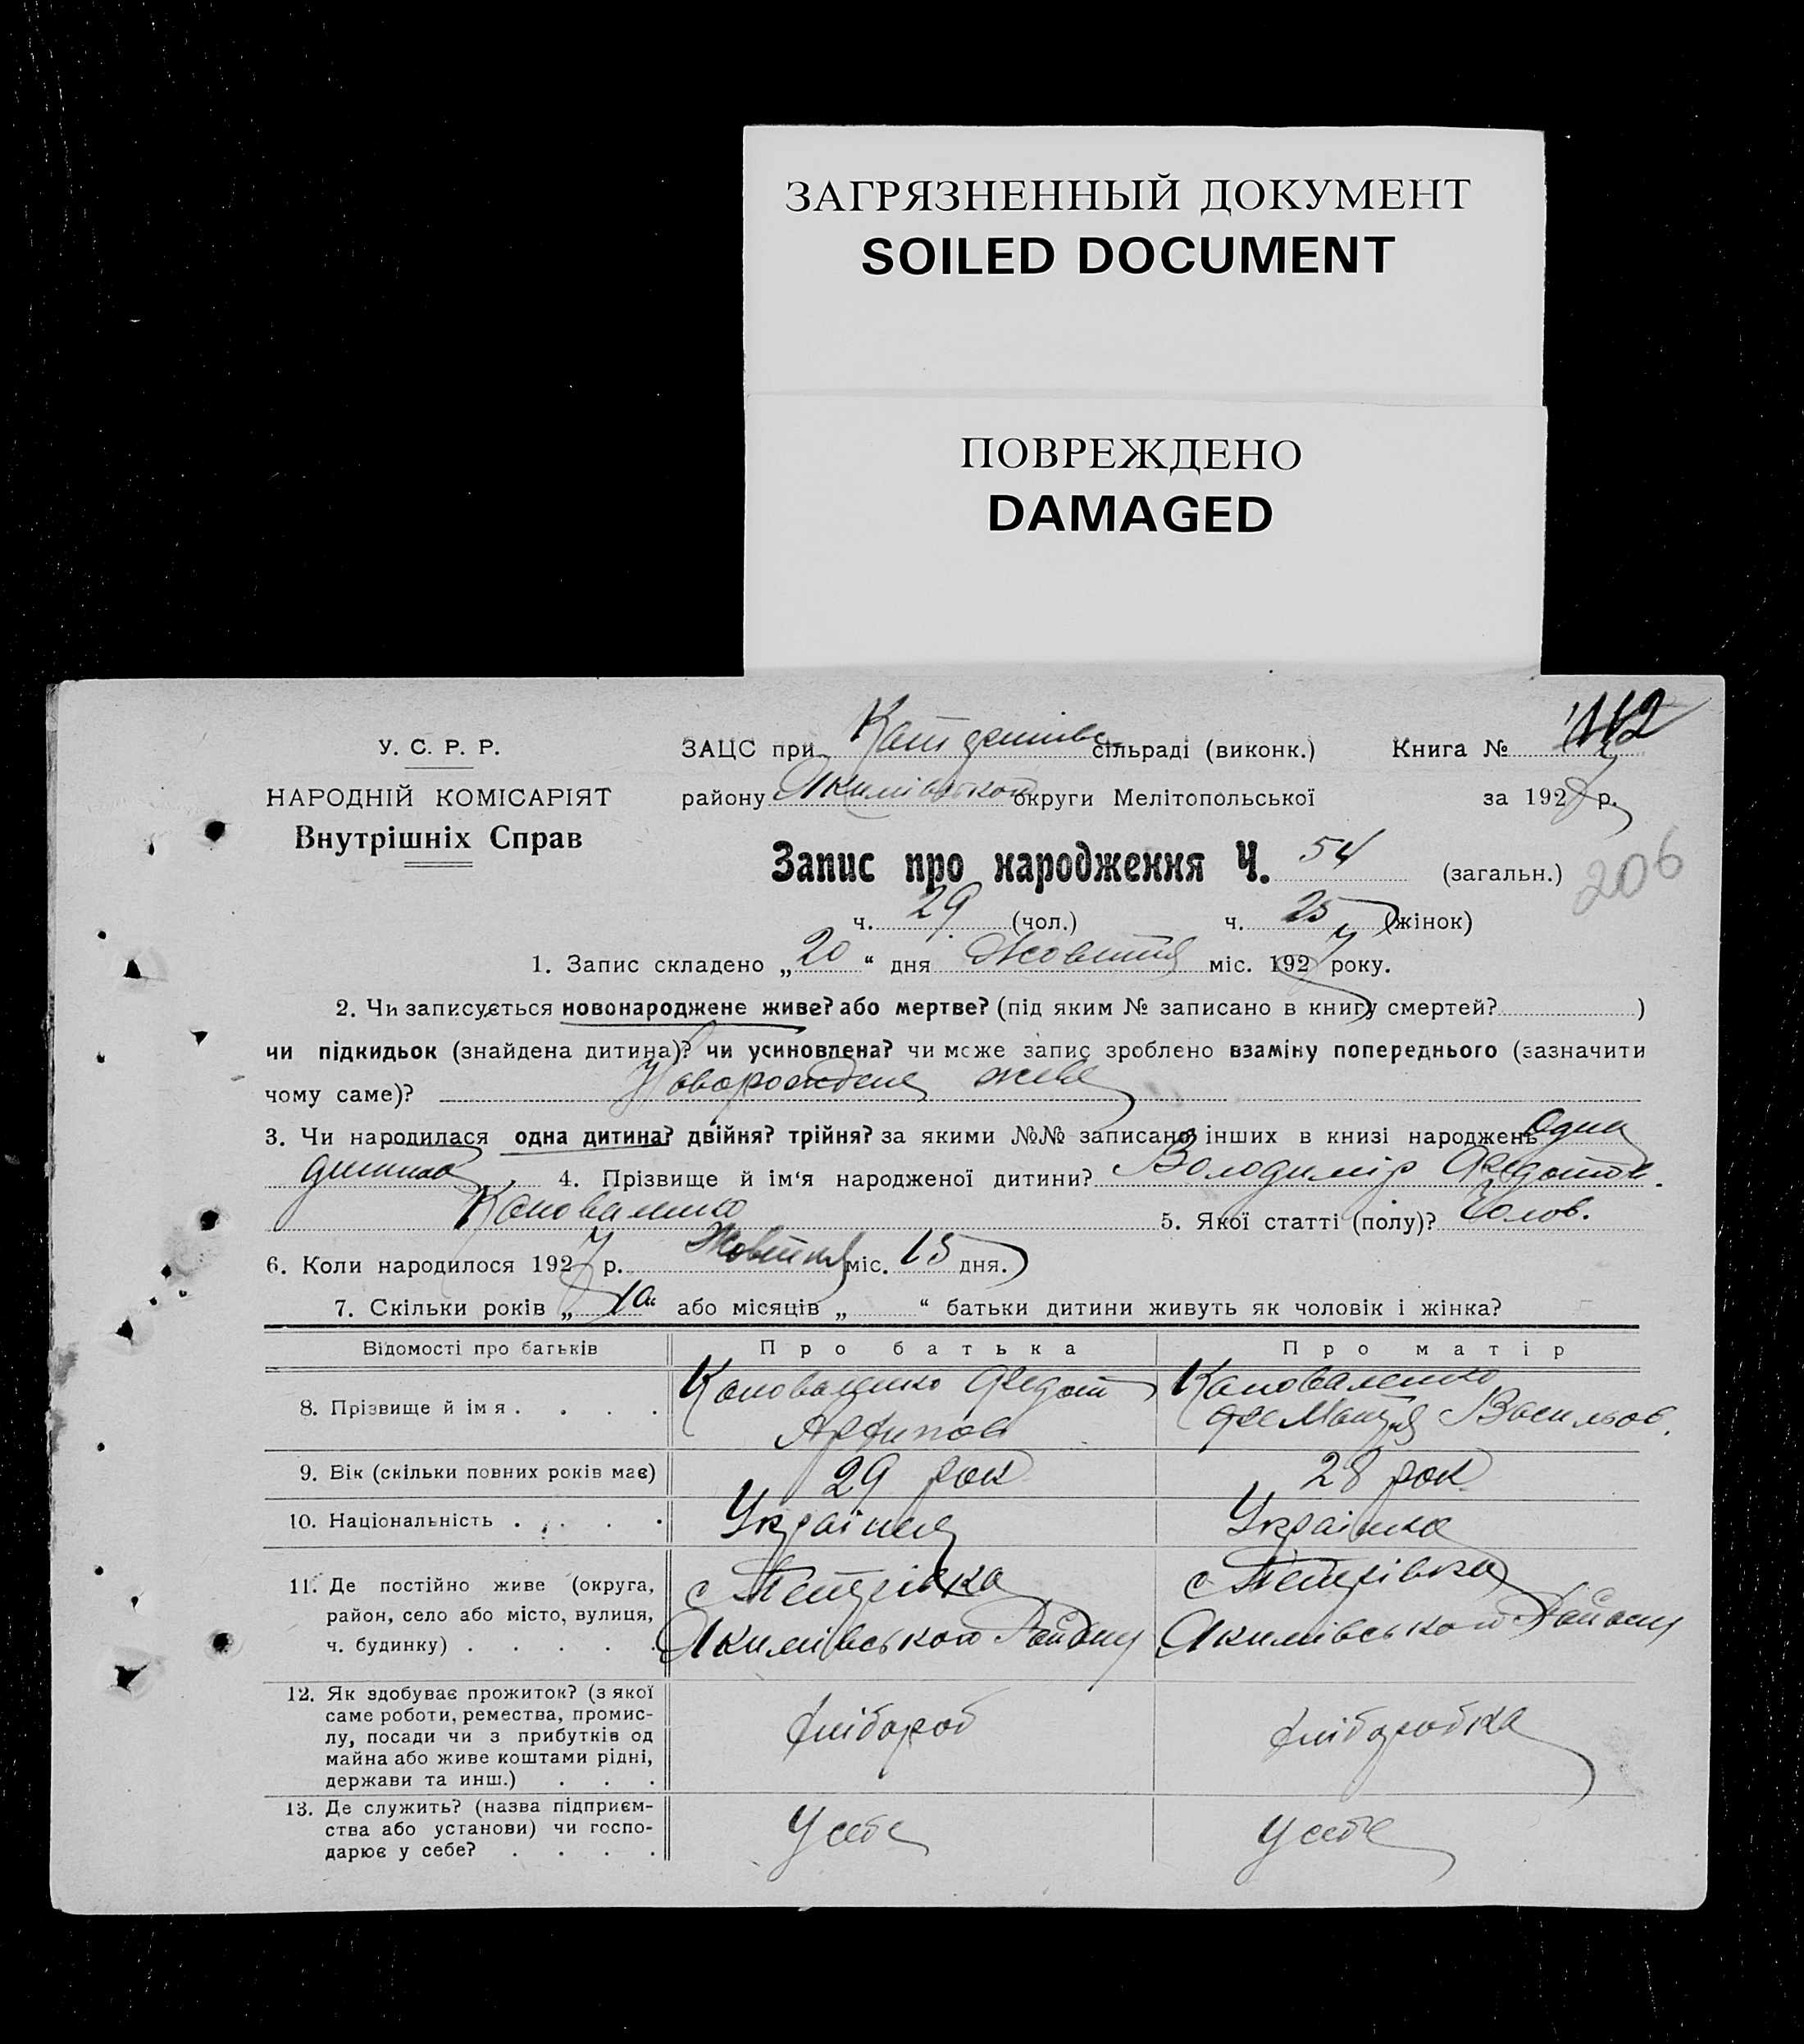 ЗАГРЯЗНЕННЫЙ ДОКУМЕНТ
SOILED DOCUMENT
ПОВРЕЖДЕНО
DAMAGED
У. С. Р. Р.
НАРОДНІЙ КОМІСАРІЯТ
Внутрішніх Справ
ЗАЦС при сільраді (виконк.) Книга №
району Якимівської округи Мелітопольської за 1927 р.
Запис про народження Ч. 54 (загальн.) 206
ч. 29 (чол.) ч. 25 (жінок)
1. Запис складено „20“ дня Жовтня міс. 1927 року.
2. Чи записується новонароджене живе? або мертве? (під яким № записано в книгу смертей? )
чи підкидьок (знайдена дитина)? чи усиновлена? чи може запис зроблено взаміну попереднього (зазначити
чому саме)? Новорожденя живе
3. Чи народилася одна дитина? двійня? трійня? за якими №№ записано інших в книзі народжень Одна
дитина 4. Прізвище й ім‘я народженої дитини? Володимір Федотов.
Коноваленко 5. Якої статті (полу)? Чолов.
6. Коли народилося 1927 р. Жовтня міс. 15 дня.
7. Скільки років „ “ або місяців „ “ батьки дитини живуть як чоловік і жінка?
Відомості про батьків Про батька Про матір
8. Прізвище й імя . . . . Коноваленко Федот Коноваленко
Архипов Васильов.
9. Вік (скільки повних років має) 29 рок 28 рок
10. Національність . . . . Українец Українка
11. Де постійно живе (округа, с Петрівка с Петрівка
район, село або місто, вулиця, Якимівського Району Якимівського Району
ч. будинку) . . . . .
12. Як здобуває прожиток? (з якої
саме роботи, ремества, промис- хлібороб хліборобка
лу, посади чи з прибутків од
майна або живе коштами рідні,
держави та инш.) . . .
13. Де служить? (назва підприєм-
ства або установи) чи госпо- У себе У себе
дарює у себе? . . . .